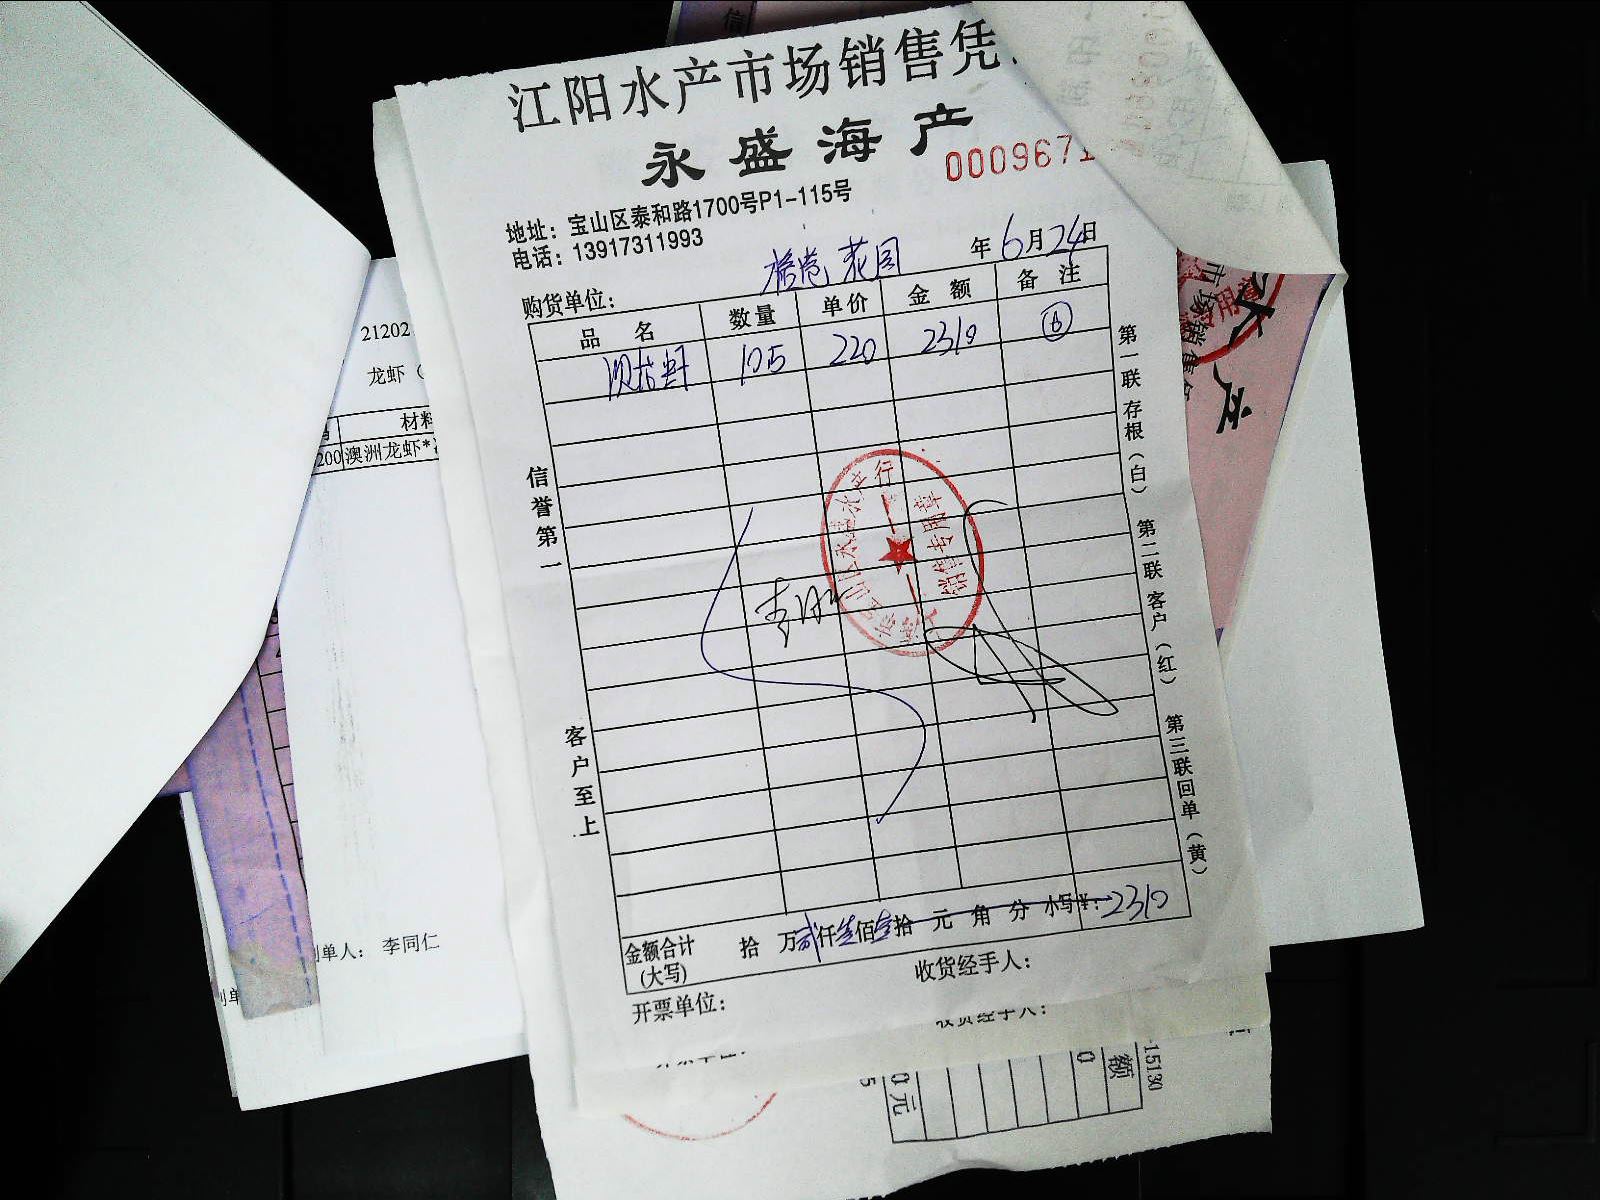 江阳水产市场销售凭
永盛海产
0009671
地址：宝山区泰和路1700号P1-115号
电话：13917311993
年6月24日
购货单位： 花园
品 名 数量 单价 金 额 备 注
105 220 2310 6
信誉第一
客户至上
第一联 存根（白） 第二联 客户（红） 第三联 回单（黄）
水产行
销售专用章
金额合计（大写） 拾 万贰仟叁佰壹拾 元 角 分 小写￥：2310
开票单位：
收货经手人：
21202
龙虾（
材料
200 澳洲龙虾*
制单人： 李同仁
收货经手人：
信
市场销售
产
15130
额
0
0元
5